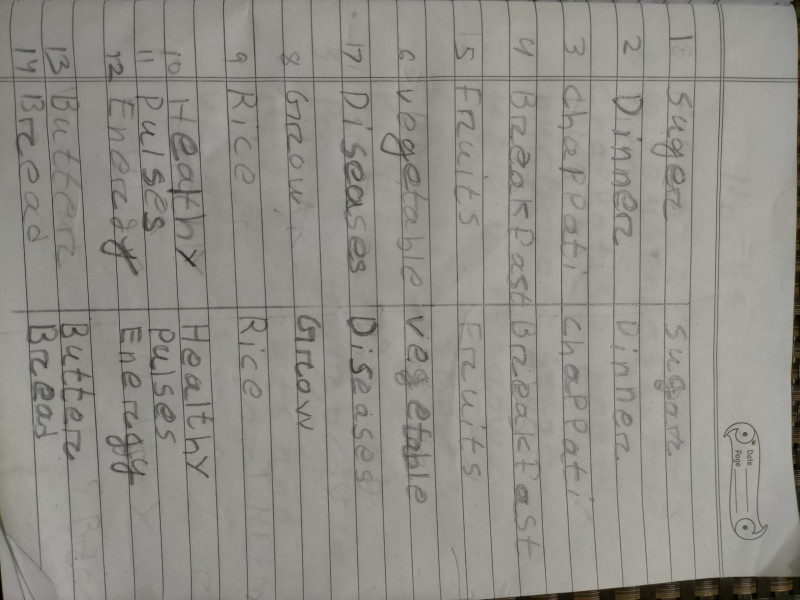 Date
Page
1 Suger Sugar
2 Dinner Dinner
3 chappati chappati
4 Breakfast Breakfast
5 Fruits Fruits
6 vegetable vegetable
7 Diseases Diseases
8 Grow Grow
9 Rice Rice
10 Healthy Healthy
11 Pulses Pulses
12 Energy Energy
13 Butter Butter
14 Bread Bread